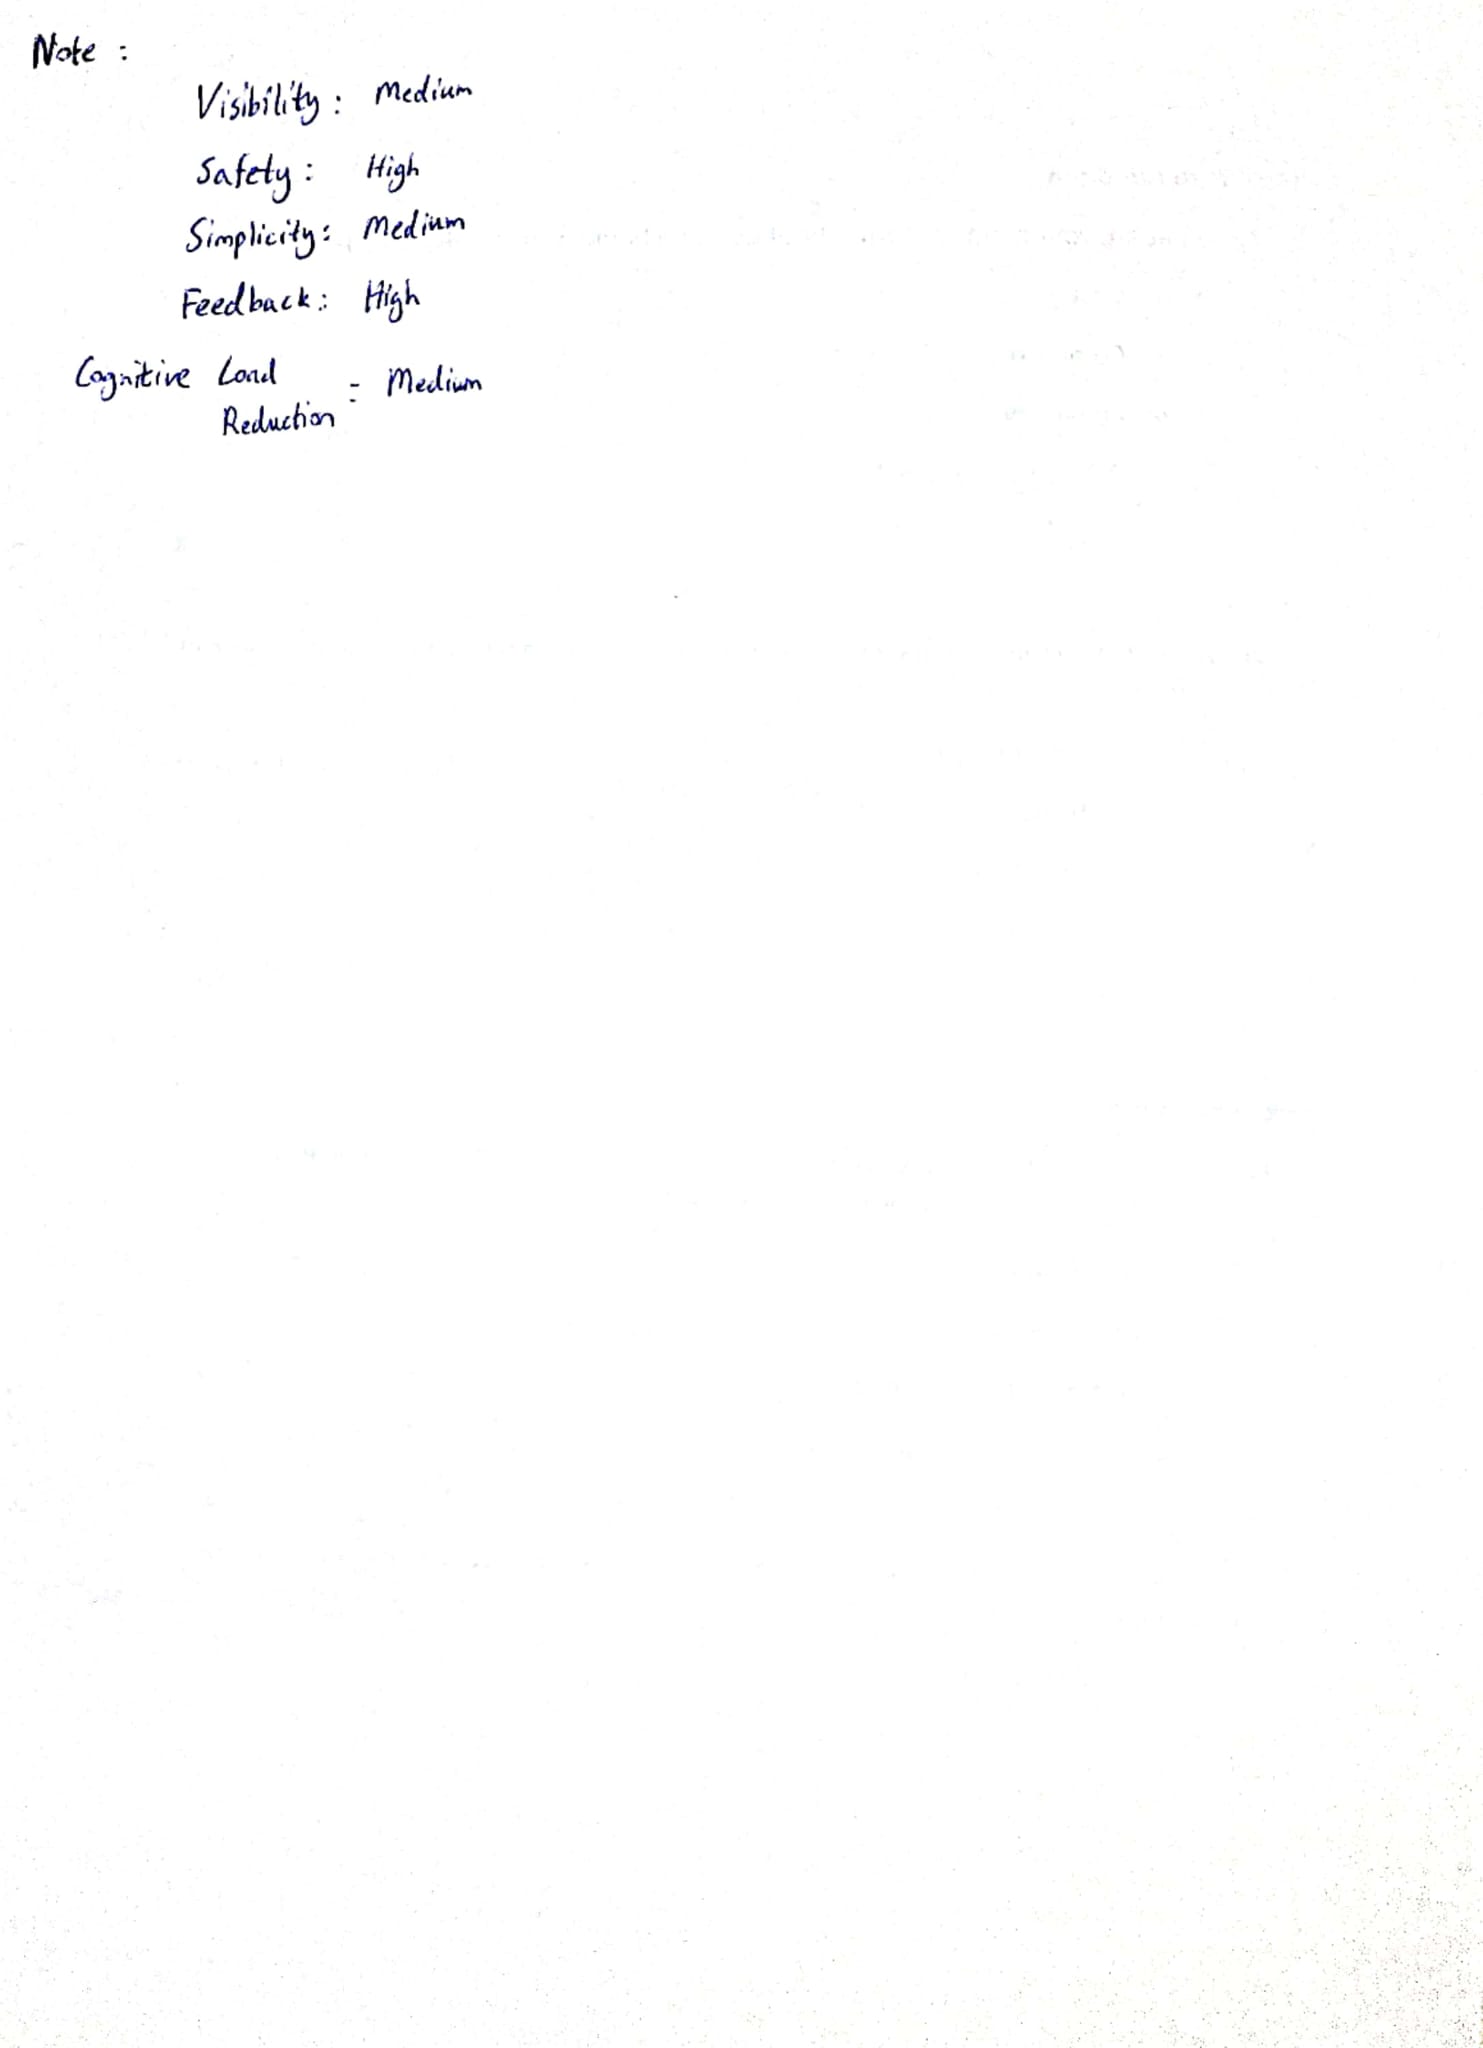 Note :
Visibility : Medium
Safety : High
Simplicity : Medium
Feedback : High
Cognitive Load
Reduction : Medium